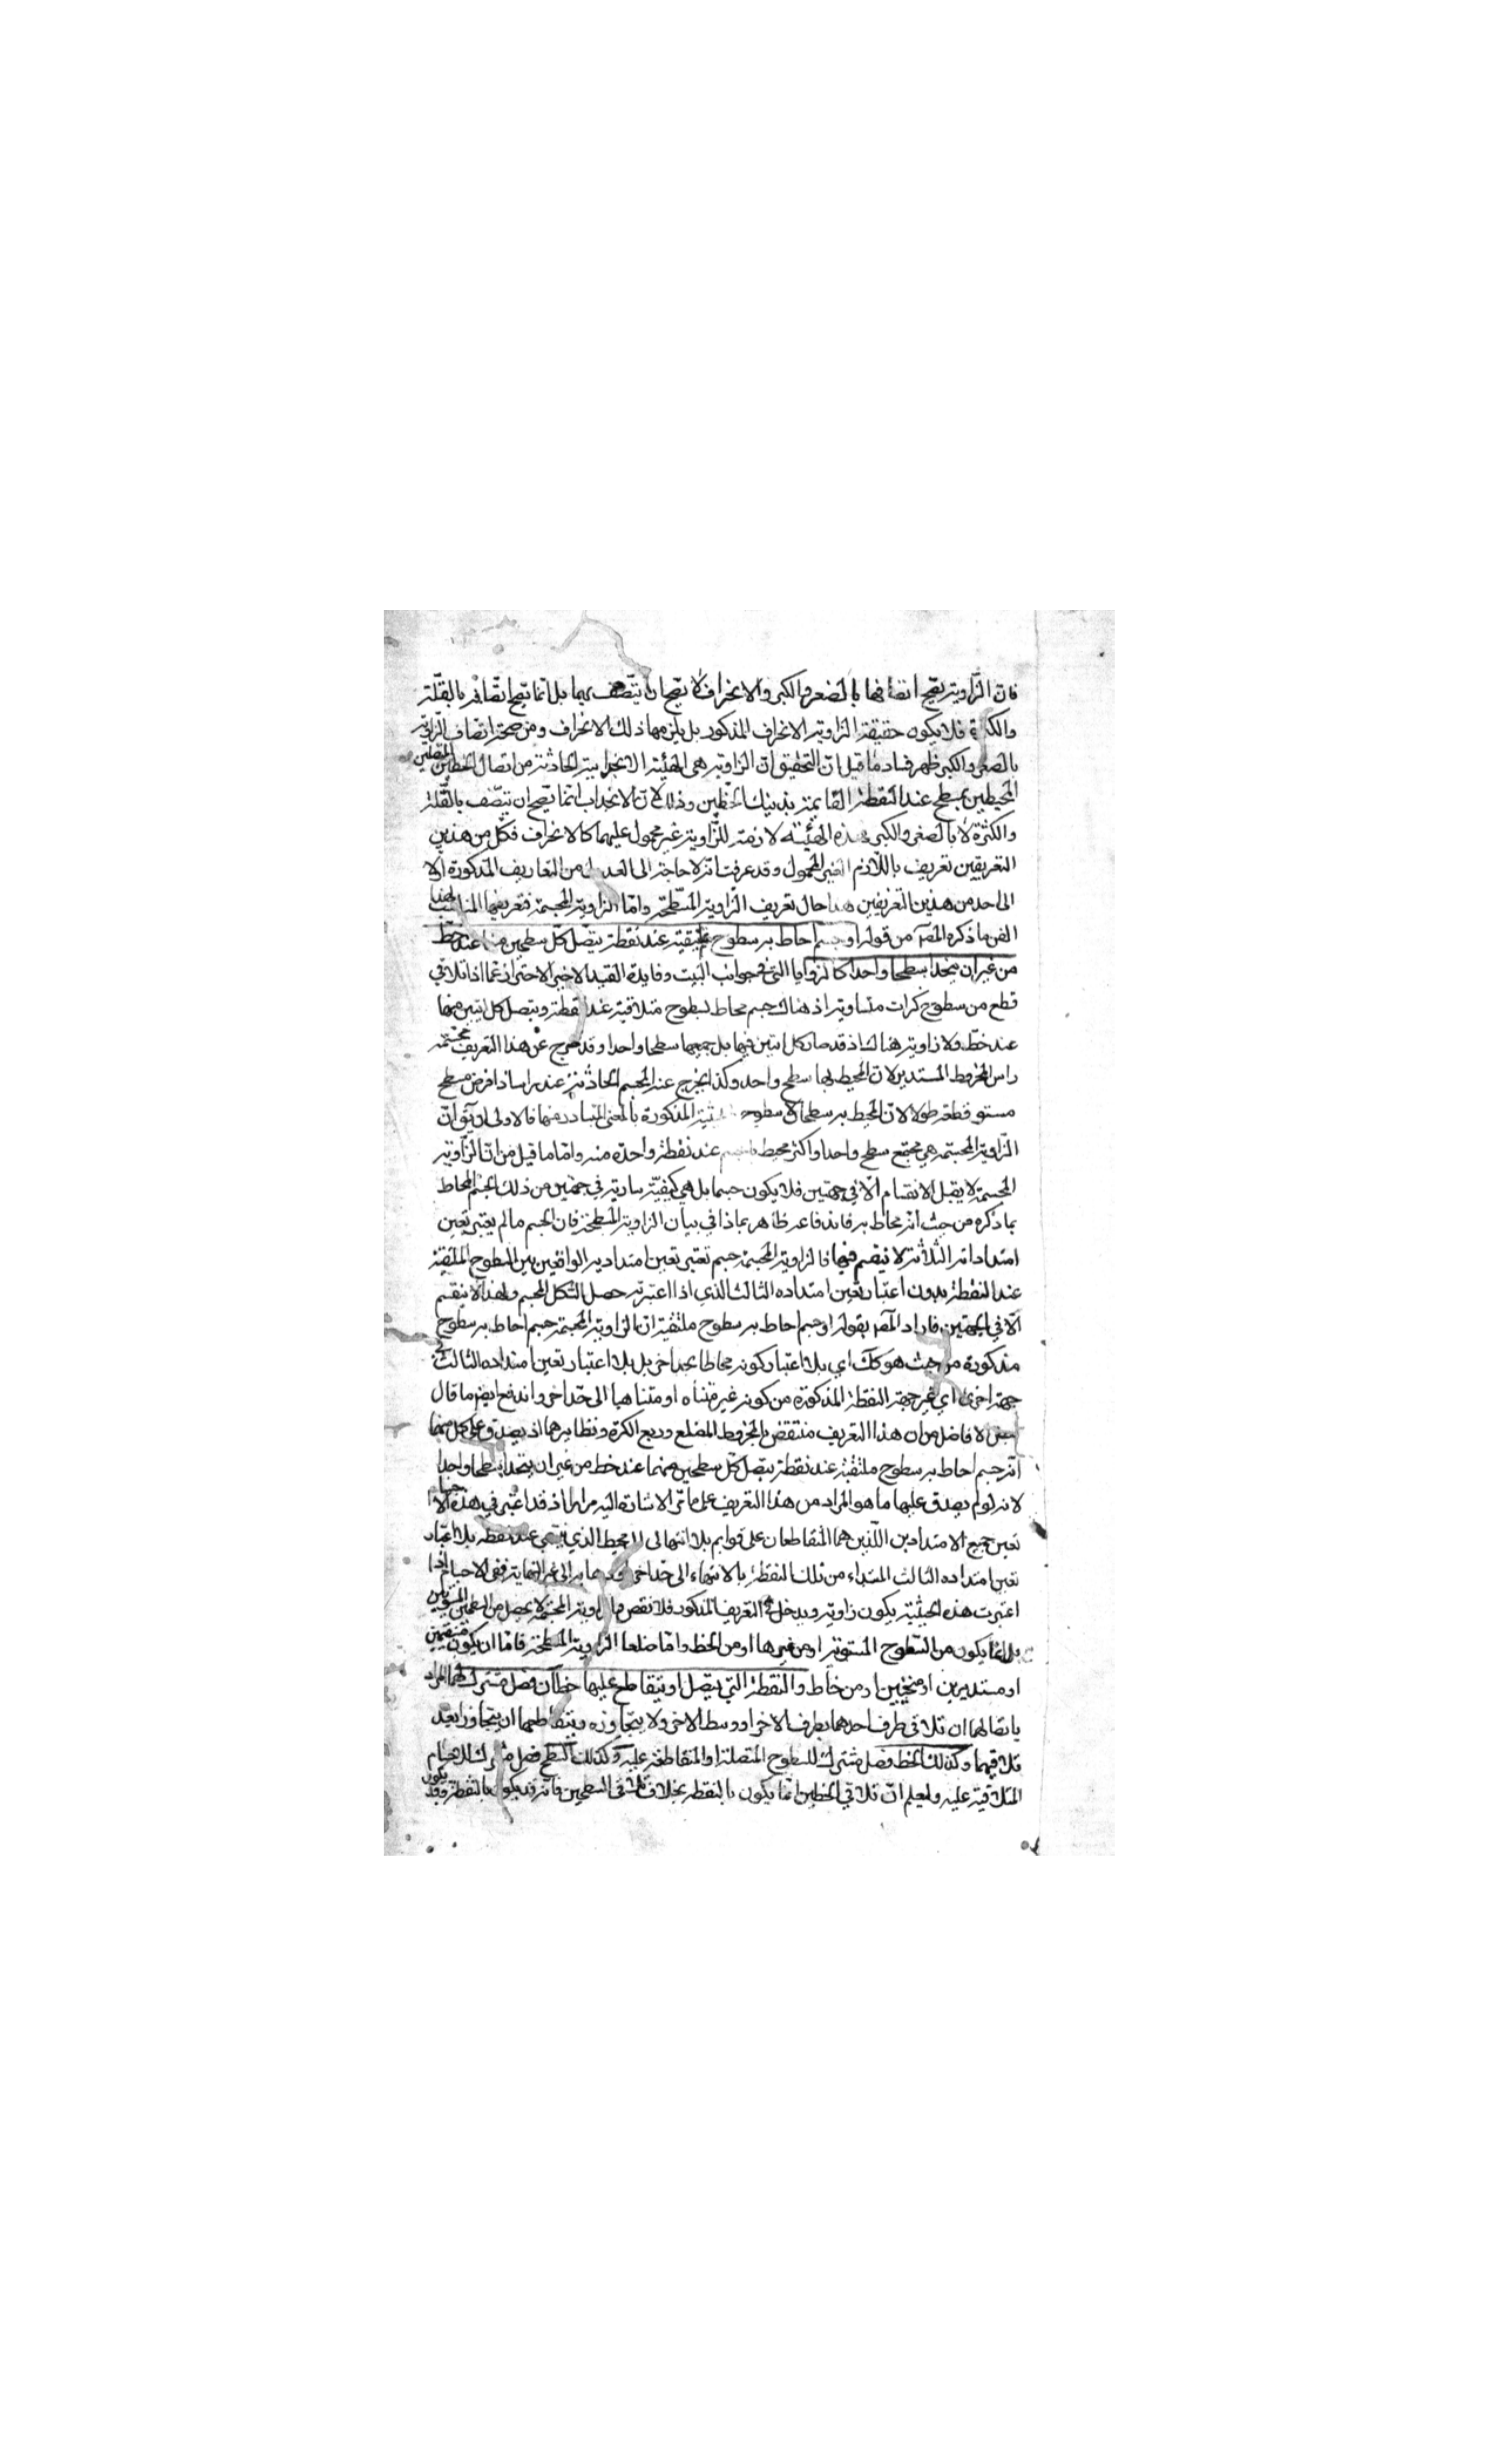 فان الزاوية يصح اتصافها بالصغر والكبر والانحراف لا يصح ان يتصف بهما بل انما يصح اتصافه بالقلة
والكثرة فلا يكون حقيقة الزاوية الانحراف المذكور بل يلزمها ذلك الانحراف ومن صحة اتصاف الزاوية
بالصغر والكبر ظهر فساد ما قيل ان التحقيق ان الزاوية هي الهيئة الانحدابية الحادثة من اتصال الخطين المتصلين
المحيطين بسطح عند النقطة القايمة بذينك الخطين وذلك لان الانحداب انما يصح ان يتصف بالقلة
والكثرة لا بالصغر والكبر هذه الهيئة لازمة للزاوية غير محمول عليهما كالانحراف فكل من هذين
التعريفين تعريف باللازم الغير المحمول وقد عرفت انه لا حاجة الى العدول من التعاريف المذكورة اولا
الى احد من هذين التعريفين هذا حال تعريف الزاوية المسطحة واما الزاوية المجسمة فتعريفها المناسب لهذا
الفن ما ذكره المصـ من قوله او جسم احاط به سطوح ملتقية عند نقطة يتصل كل سطحين منها عند خط
من غير ان يتحدا سطحا واحدا كالزوايا التي في جوانب البيت وفايدة القيد الاخير الاحتراز عما اذا تلاقي
قطع من سطوح كرات متساوية اذ هناك جسم محاط بسطوح متلاقية عند نقطة ويتصل كل اثنين منها
عند خط ولا زاوية هناك اذ قد صار كل اثنين فيها بل جميعها سطحا واحدا وقد خرج عن هذا التعريف مجسمة
راس المخروط المستدير لان المحيط بها سطح واحد وكذا يخرج عنه المجسم الحادثة عند راسه اذا فرض سطح
مستو قطعه طولا لان المحيط به سطحان لا سطوح المذكورة بالمعنى المتبادر منها فالاولى ان يق ان
الزاوية المجسمة هي مجتمع سطح واحد او اكثر محيط بجسم عند نقطة واحدة منه واما ما قيل من ان الزاوية
المجسمة لا يقبل الانقسام الا في جهتين فلا يكون جسما بل هي كيفية سارية في جهتين من ذلك الجسم المحاط
بما ذكره من حيث انه محاط به فاندفاعه ظاهر بما ذا في بيان الزاوية المسطحة فان الجسم ما لم يعتبر تعين
امتداداته الثلاثة لا ينقسم فيها فالزاوية المجسمة جسم تعتبر تعين امتداديه الواقعين بين السطوح الملتقية
عند النقطة بدون اعتبار تعين امتداده الثالث الذي اذا اعتبرته حصل الشكل المجسم ولهذا لا ينقسم
الا في الجهتين فاراد المصـ بقوله او جسم احاط به سطوح ملتقية ان الزاوية المجسمة جسم احاط به سطوح
مذكورة من حيث هو كك اي بلا اعتبار كونه محاطا بحد اخر بل بلا اعتبار تعين امتداده الثالث في
جهة اخرى اي غير جهة النقطة المذكورة من كونه غير متناه او متناهيا الى حد اخر واندفع ايضا ما قال
بعض الافاضل من ان هذا التعريف منتقض بالمخروط المضلع وربع الكرة ونظايرهما اذ يصدق على كل منها
انه جسم احاط به سطوح ملتقية عند نقطة يتصل كل سطحين منهما عند خط من غير ان يتحدا سطحا واحدا
لانه لو لم يصدق عليها ما هو المراد من هذا التعريف على ما مر الاشارة اليه مرارا اذ قد اعتبر في هذه الاجسام
تعين جميع الامتدادين اللذين هما المتقاطعان على قوايم بلا انتها الى المحيط الذي ينتهي عند نقطة بلا اعتبار
تعين امتداده الثالث المبتداء من تلك النقطة بالانتهاء الى حد اخر الى غير النهاية ففي الاجسام اذا
اعتبرت هذه الحيثية يكون زاوية ويدخل في التعريف المذكور فلا نقض والزاوية المجسمة لا يحصل من السطحين المستويين
بل انما يكون من السطوح المستوية او من غيرها او من الخط واما ضلعا الزاوية المسطحة فاما ان يكون مستقيمين
او مستديرين او منحنيين او من خاط والنقطة التي يتصل او يتقاطع عليها خطان فصل مشترك لهما المراد
باتصالهما ان تلاقي طرف احدهما بطرف الاخر او وسط الاخر ولا يتجاوزه وبتقاطعهما ان يتجاوزا بعد
تلاقيهما وكذلك الخط فصل مشترك للسطوح المتصلة او المتقاطعة عليه وكذلك السطح فصل مشترك للاجسام
المتلاقية عليه وليعلم ان تلاقي الخطين انما يكون بالنقطة بخلاف تلاقي السطحين فانه قد يكون بالنقطة وقد يكون